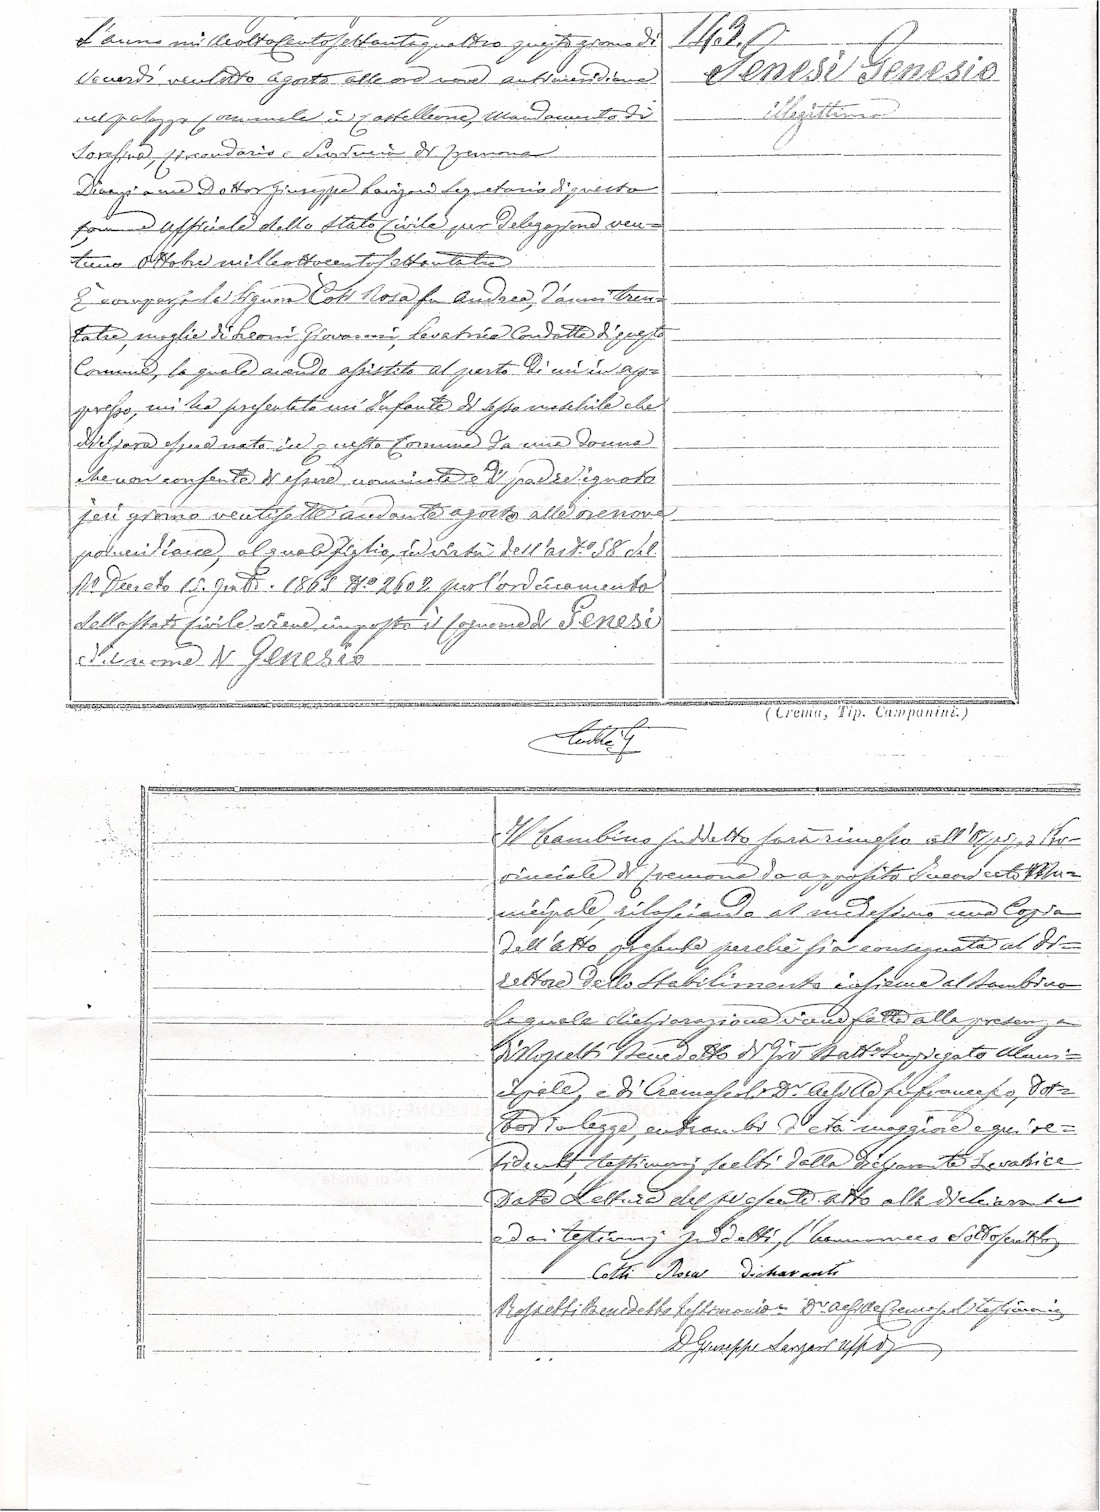 L'anno milleottocentosettantaquattro questo giorno di
Venerdì ventotto agosto alle ore nove antimeridiane
nel palazzo Comunale in Castelleone, Mandamento di
Soresina, Circondario e Provincia di Cremona
Dinanzi a me Dottor Giuseppe Segretario di questo
Comune Ufficiale dello Stato Civile per delegazione ven=
tuno Ottobre milleottocentosettantatre
È comparsa la Signora Cotti Rosa fu Andrea, d'anni tren=
tatre, moglie di Leoni Giovanni, Levatrice Condotta di questo
Comune, la quale avendo assistito al parto di cui in ap=
presso, mi ha presentato un Infante di sesso maschile che
dichiara essere nato in questo Comune da una donna
che non consente di essere nominata e di padre ignoto
jeri giorno ventisette andante agosto alle ore nove
pomeridiane, al quale figlio, in virtù dell'arto 58 del
Ro Decreto 15. 1865 No 2602 per l'ordinamento
dello stato Civile viene imposto il Cognome di Senesi
ed il nome di Genesio
142.
Senesi Genesio
illegittimo
(Crema, Tip. Campanini.)
Il bambino suddetto sarà rimesso all'Ospizio Pro=
vinciale di Cremona da apposito Incaricato Mu=
nicipale, rilasciando al medesimo una Copia
dell'atto presente perchè sia consegnata al Di=
rettore dello Stabilimento insieme al bambino
La quale dichiarazione viene fatta alla presenza
di Rossetti Benedetto di Gio Batta Impiegato Muni=
cipale, e di Dr Achille fu Francesco, Dot=
tor in legge, entrambi d'età maggiore e qui re=
sidenti, testimonj scelti dalla dichiarante Levatrice
Data Lettura del presente atto alla dichiarante
ed ai testimonj suddetti, l'hanno meco sottoscritto
Cotti Rosa dichiarante
Rossetti Benedetto testimonio = Dr Achille testimonio
D Giuseppe